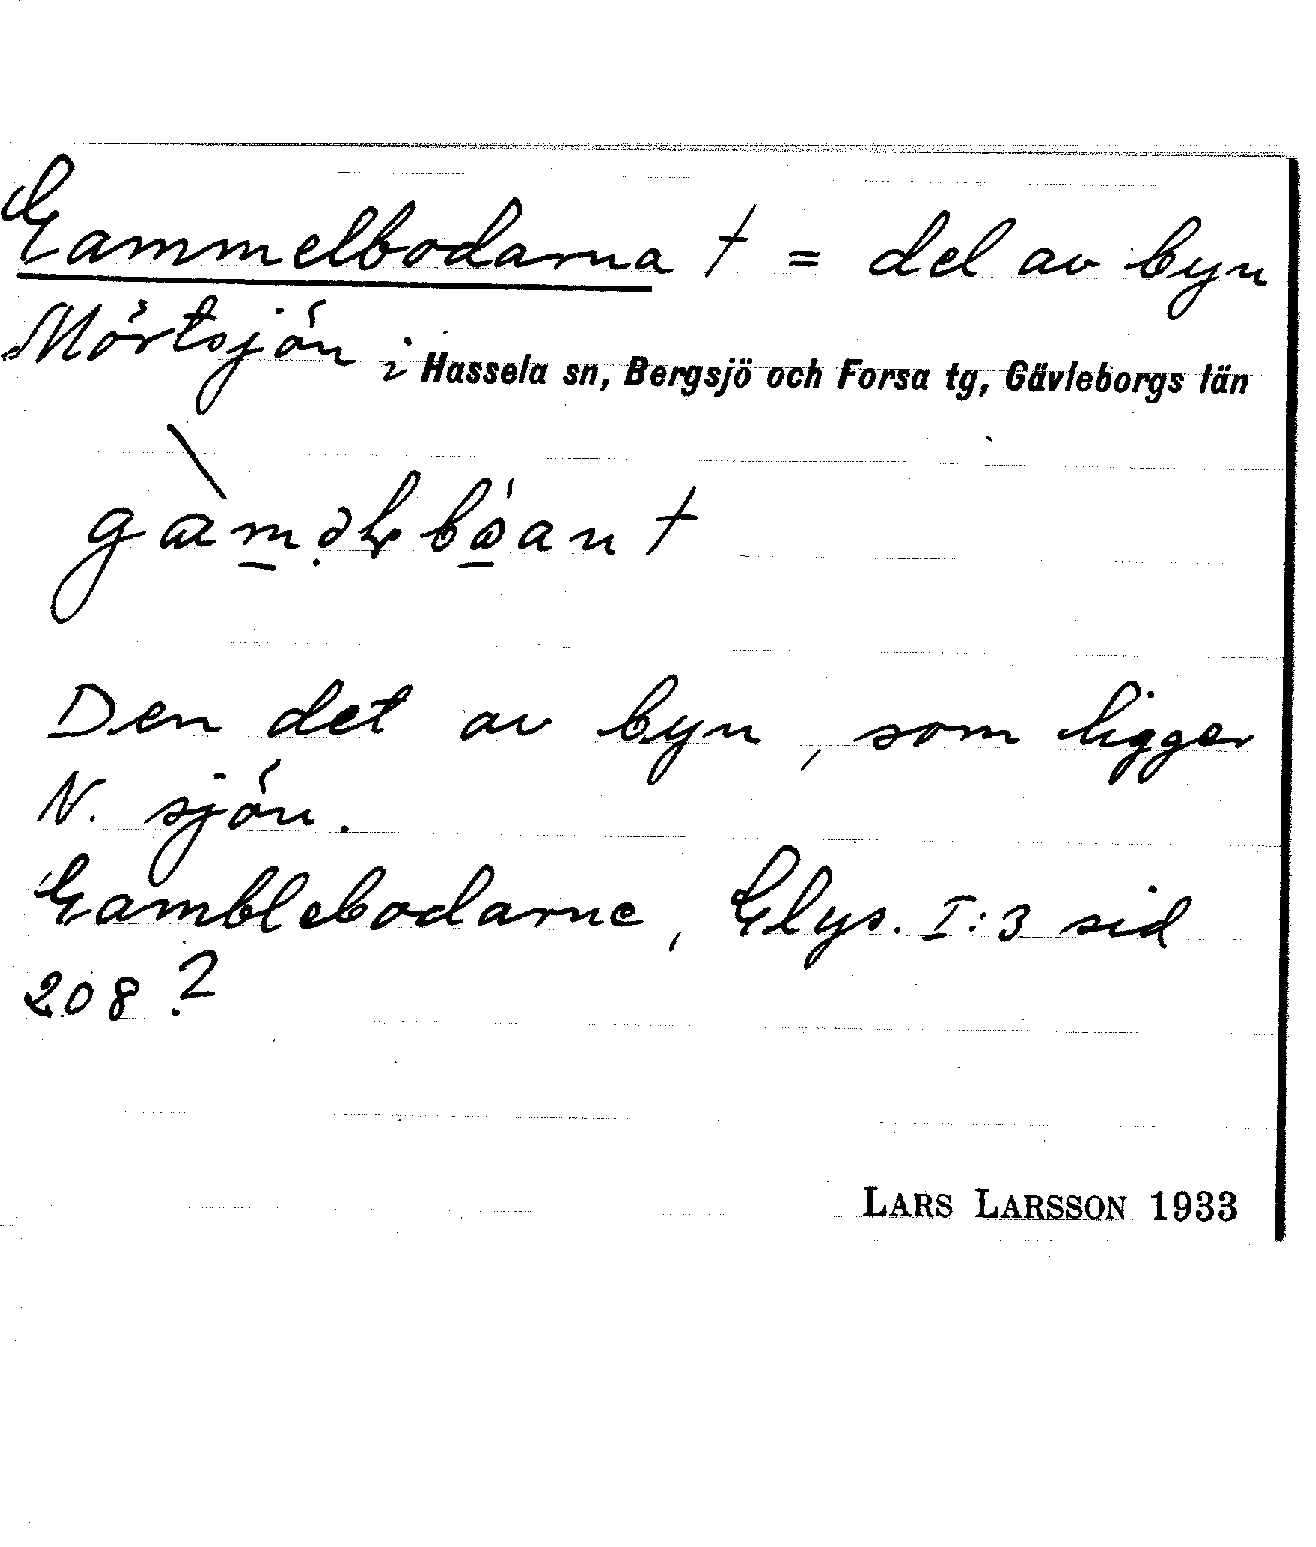 Gammelbodarna † = del av byn
Mörtsjön i Hassela sn, Bergsjö och Forsa tg, Gävleborgs län
Den det av byn, som ligger
N. sjön.
Gamblebodarne, Elys. I:3 sid
208?
LARS LARSSON 1933